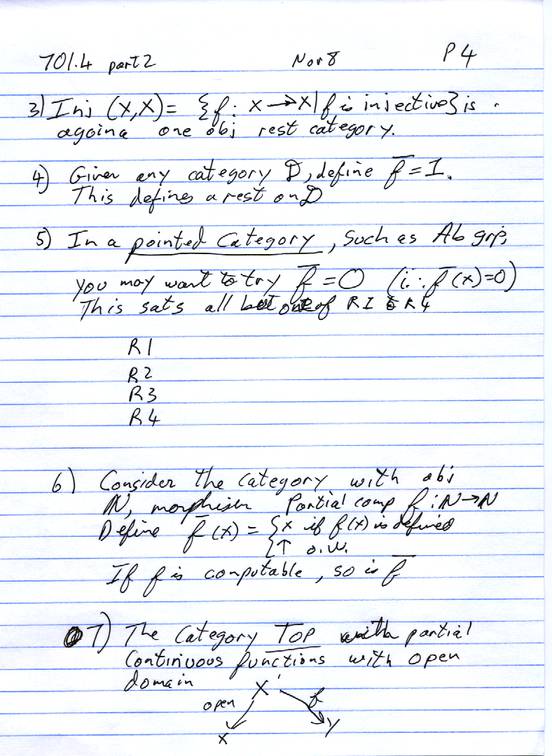 701.4 part2 Nov 8 P4
3) Inj (X,X) = {f: X→X | f is injective} is
again a one obj rest category.
4) Given any category D, define f̅ = I.
This defines a rest on D
5) In a pointed Category, such as Ab grps,
you may want to try f̅ = 0 (i.e. f̅(x)=0)
This sats all but one of R1 to R4
R1
R2
R3
R4
6) Consider the category with obj
N, morphism Partial comp f: N→N
Define f̅(x) = {x if f(x) is defined
{↑ o.w.
If f is computable, so is f̅
7) The Category TOP with partial
Continuous functions with open
domain
X
open f
X Y